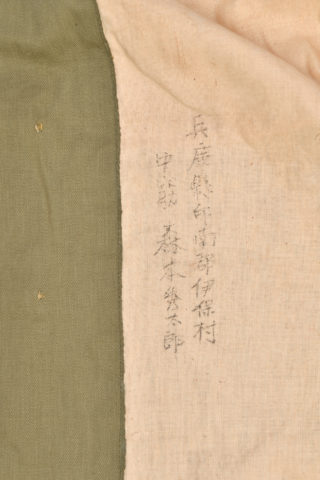 兵庫縣印南郡伊保村
中筋 森本幾太郎